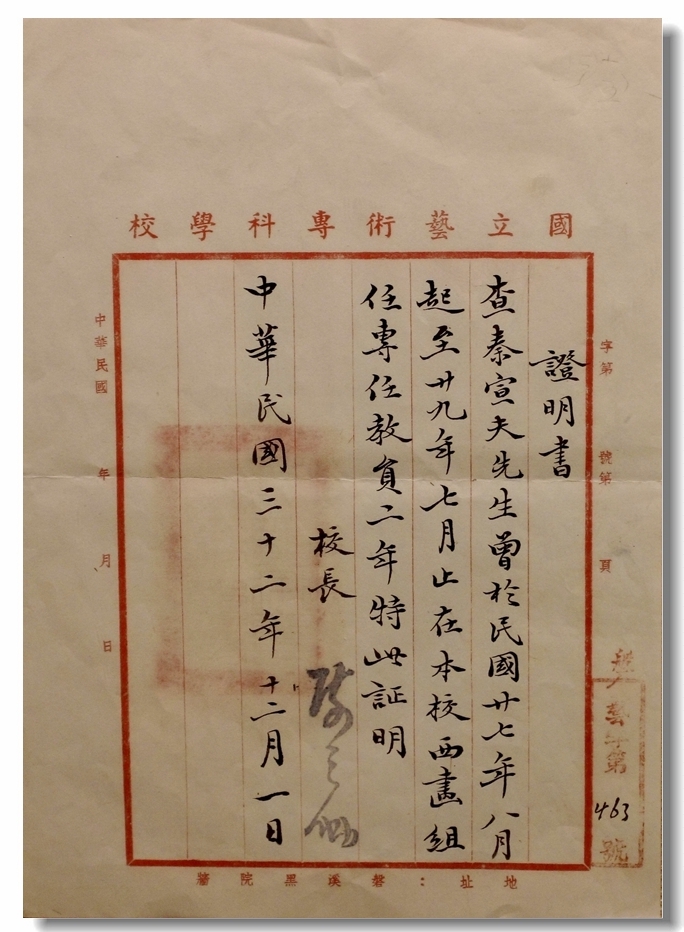 國立藝術專科學校
字第 號第 頁
證明書
查秦宣夫先生曾於民國廿七年八月
起至廿九年七月止在本校西畫組
任專任教員二年特此証明
校長
中華民國三十二年十二月一日
中華民國 年 月 日
藝字第
463
號
地址：磐溪黑院牆